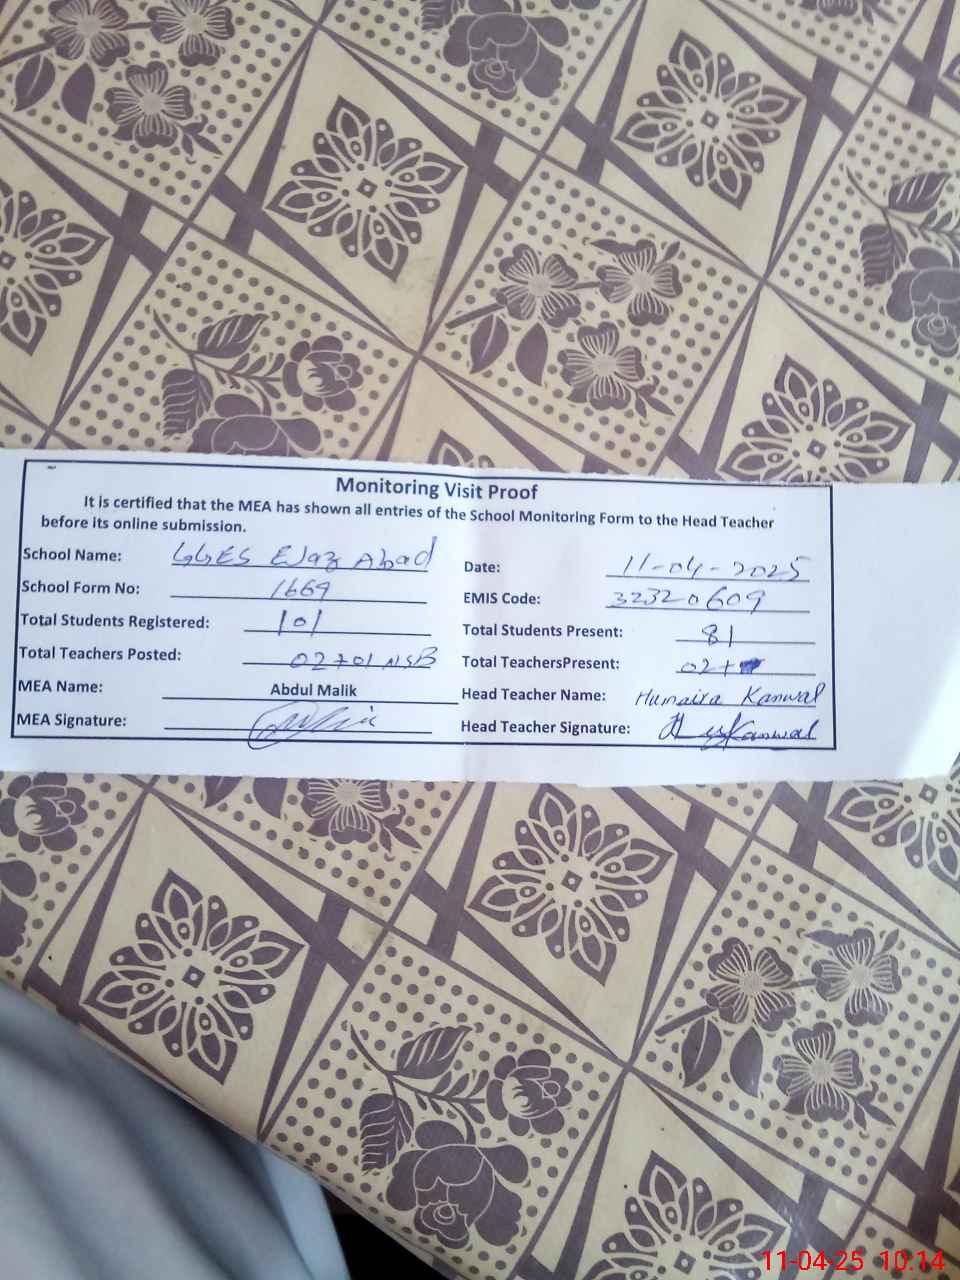 Monitoring Visit Proof
It is certified that the MEA has shown all entries of the School Monitoring Form to the Head Teacher
before its online submission.
School Name: GGES EJaz Abad
Date: 11-04-2025
School Form No: 1669
EMIS Code: 32320609
Total Students Registered: 101
Total Students Present: 81
Total Teachers Posted: 02+01 NSB
Total TeachersPresent: 02+
MEA Name: Abdul Malik
Head Teacher Name: Humaira Kanwal
MEA Signature:
Head Teacher Signature: Kanwal
11-04-25 10:14